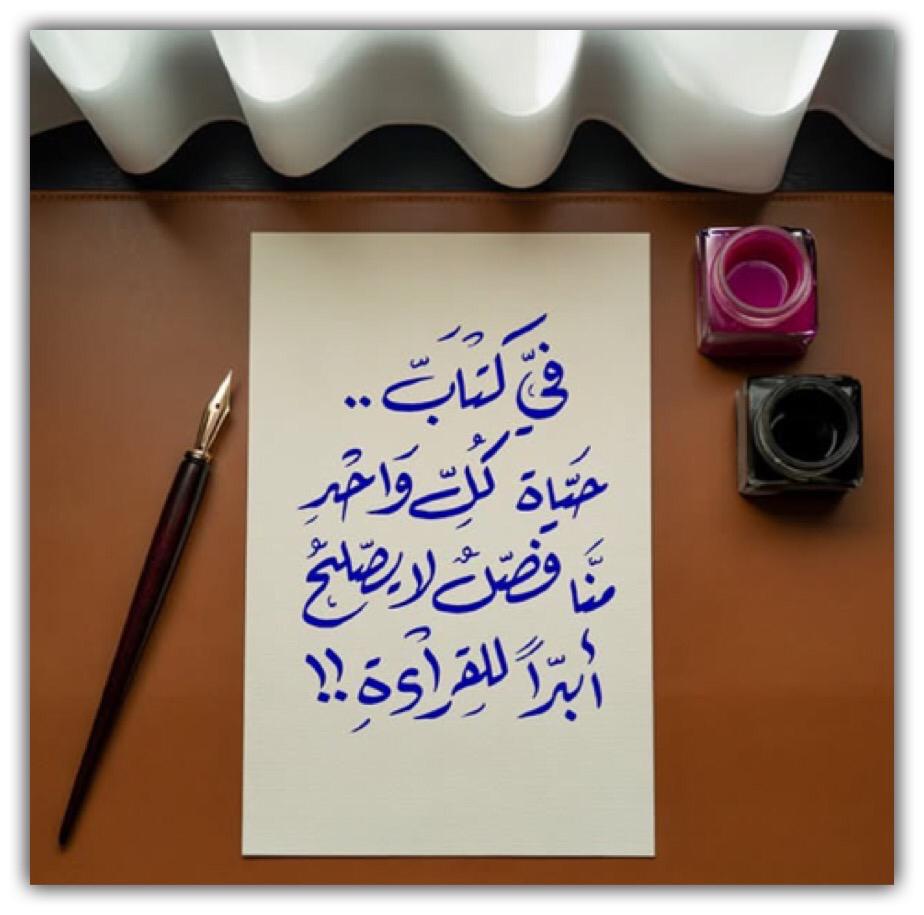 في كتاب ..
حياة كل واحد
منا فصل لا يصلح
أبداً للقراءة !!